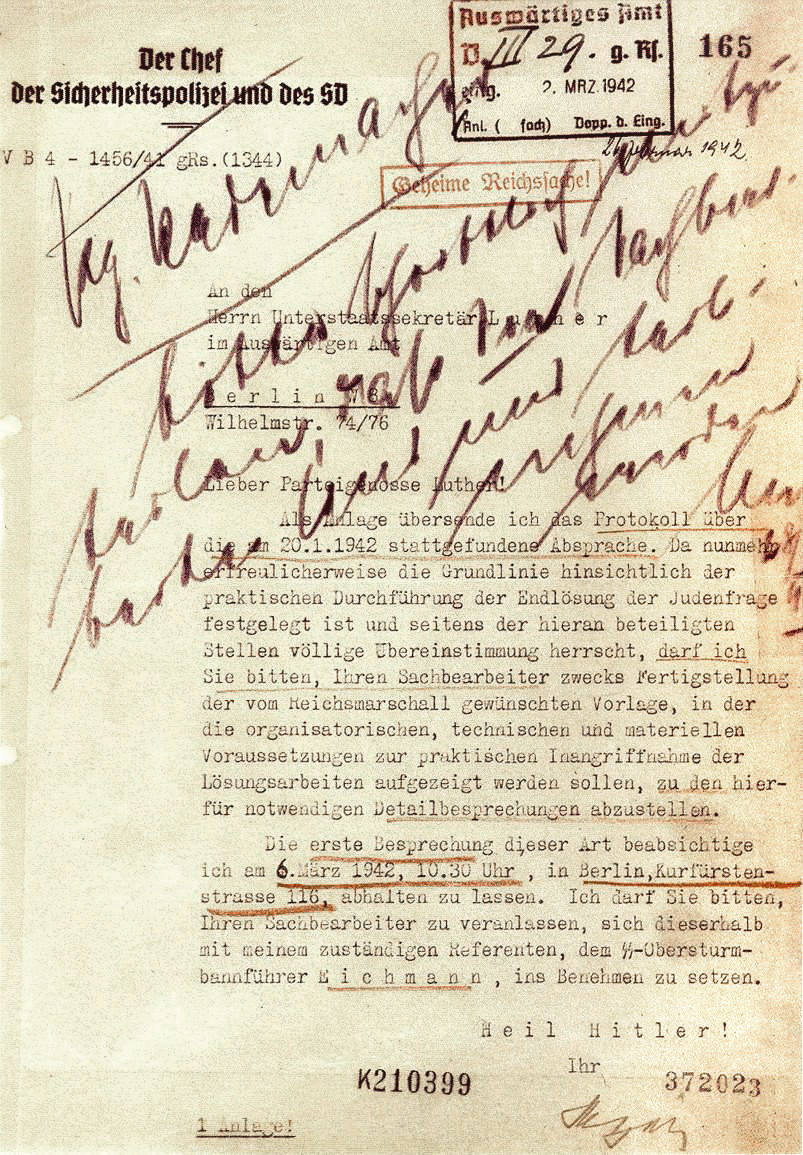 Der Chef
der Sicherheitspolizei und des SD
V B 4 - 1456/41 gRs.(1344)
Auswärtiges Amt
D. III 29. g. Rs.
eing. 2. MRZ. 1942
Anl. ( fach) Dopp. d. Eing.
165
26. Februar 1942.
Geheime Reichssache!
An den
Herrn Unterstaatssekretär L u t h e r
im Auswärtigen Amt
B e r l i n W 8
Wilhelmstr. 74/76
Lieber Parteigenosse Luther!
Als Anlage übersende ich das Protokoll über
die am 20.1.1942 stattgefundene Absprache. Da nunmehr
erfreulicherweise die Grundlinie hinsichtlich der
praktischen Durchführung der Endlösung der Judenfrage
festgelegt ist und seitens der hieran beteiligten
Stellen völlige Übereinstimmung herrscht, darf ich
Sie bitten, Ihren Sachbearbeiter zwecks Fertigstellung
der vom Reichsmarschall gewünschten Vorlage, in der
die organisatorischen, technischen und materiellen
Voraussetzungen zur praktischen Inangriffnahme der
Lösungsarbeiten aufgezeigt werden sollen, zu den hier-
für notwendigen Detailbesprechungen abzustellen.
Die erste Besprechung dieser Art beabsichtige
ich am 6.März 1942, 10.30 Uhr , in Berlin,Kurfürsten-
strasse 116, abhalten zu lassen. Ich darf Sie bitten,
Ihren Sachbearbeiter zu veranlassen, sich dieserhalb
mit meinem zuständigen Referenten, dem SS-Obersturm-
bannführer E i c h m a n n , ins Benehmen zu setzen.
H e i l H i t l e r !
Ihr
K210399
372023
1 Anlage!
Pg. Rademacher
bitte